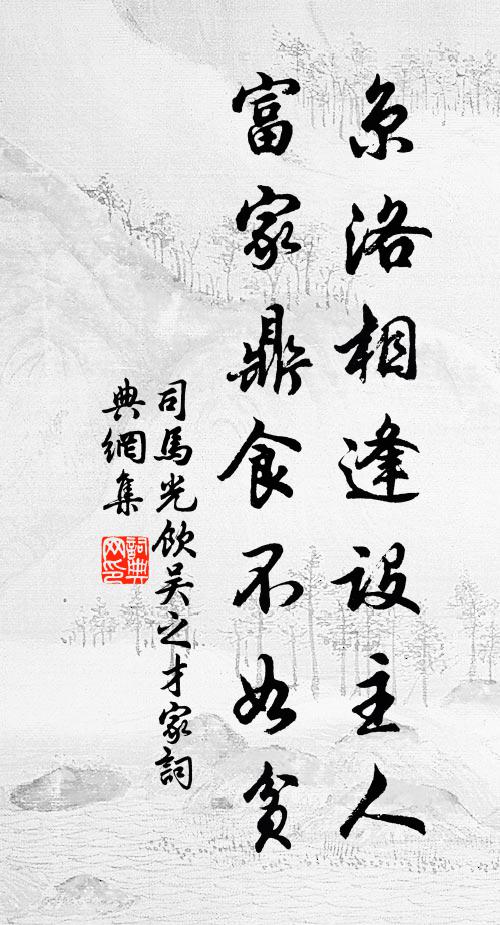 京洛相逢設主人
富家鼎食不如貧
司馬光飲吳之才家詞
典網集
詞典
网印